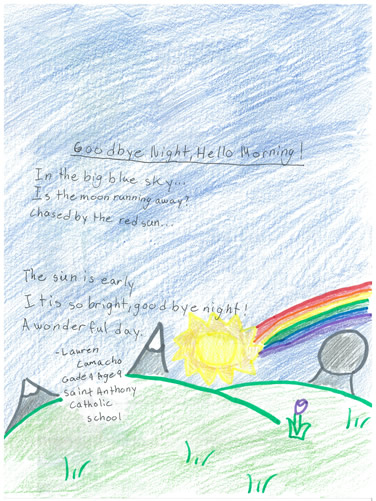 Goodbye Night, Hello Morning!
In the big blue sky...
Is the moon running away?
chased by the red sun...
The sun is early
It is so bright, good bye night!
A wonderful day.
-Lauren
Camacho
Grade 4 Age 9
Saint Anthony
Catholic
school